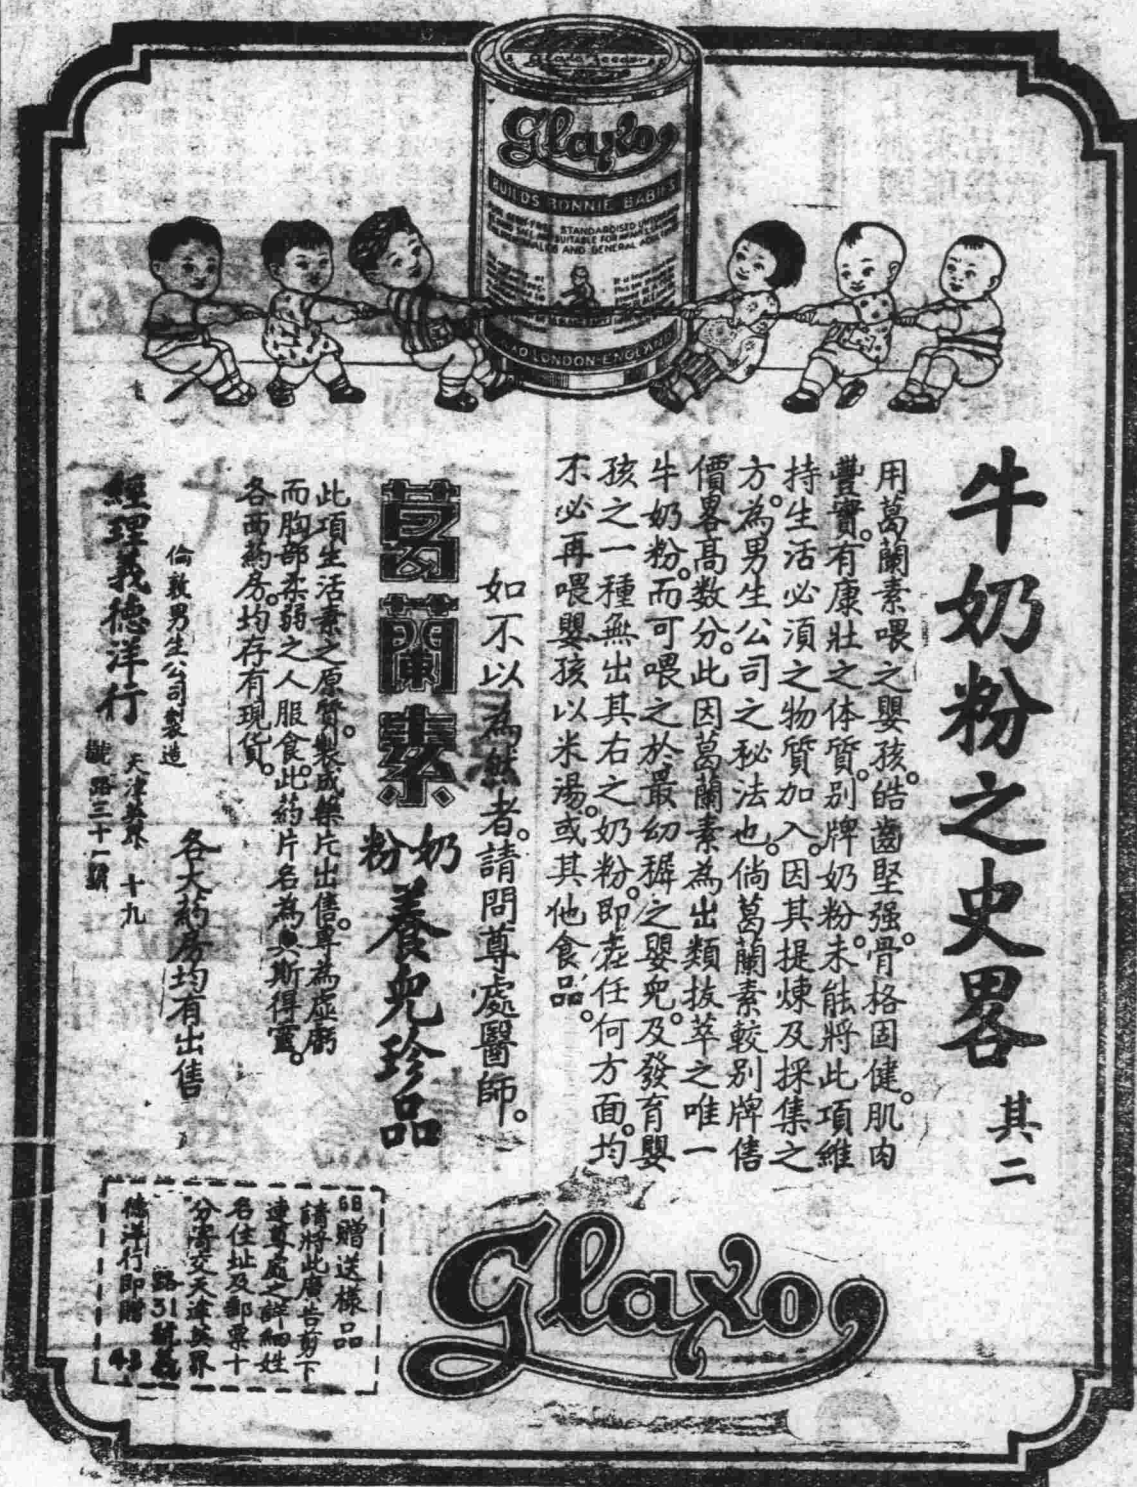 Glaxo
BUILDS BONNIE BABIES
STANDARDISED
SUITABLE FOR
AND GENERAL
LONDON·ENGLAND
牛奶粉之史畧 其二
用葛蘭素喂之嬰孩。皓齒堅强。骨格固健。肌肉
豐實。有康壯之体質。別牌奶粉。未能將此項維
持生活必須之物質加入。因其提煉及採集之
方。為男生公司之秘法也。倘葛蘭素較別牌售
價畧高数分。此因葛蘭素為出類拔萃之唯一
牛奶粉。而可喂之於最幼穉之嬰兒。及發育嬰
孩之一種無出其右之奶粉。即在任何方面。均
不必再喂嬰孩以米湯。或其他食品。
如不以為然者。請問尊處醫師。
葛蘭素奶粉 養兒珍品
此項生活素之原質。製成藥片出售。專為虛虧
而胸部柔弱之人服食。此葯片名為奥斯得靈。
各西葯房。均存有現货。
各大葯房均有出售
倫敦男生公司製造
經理義德洋行 天津英界十九號路三十一號
贈送樣品
請將此廣告剪下
連尊處之詳細姓
名住址及郵票十
分寄交天津英界
路31號義
德洋行即贈 43
Glaxo